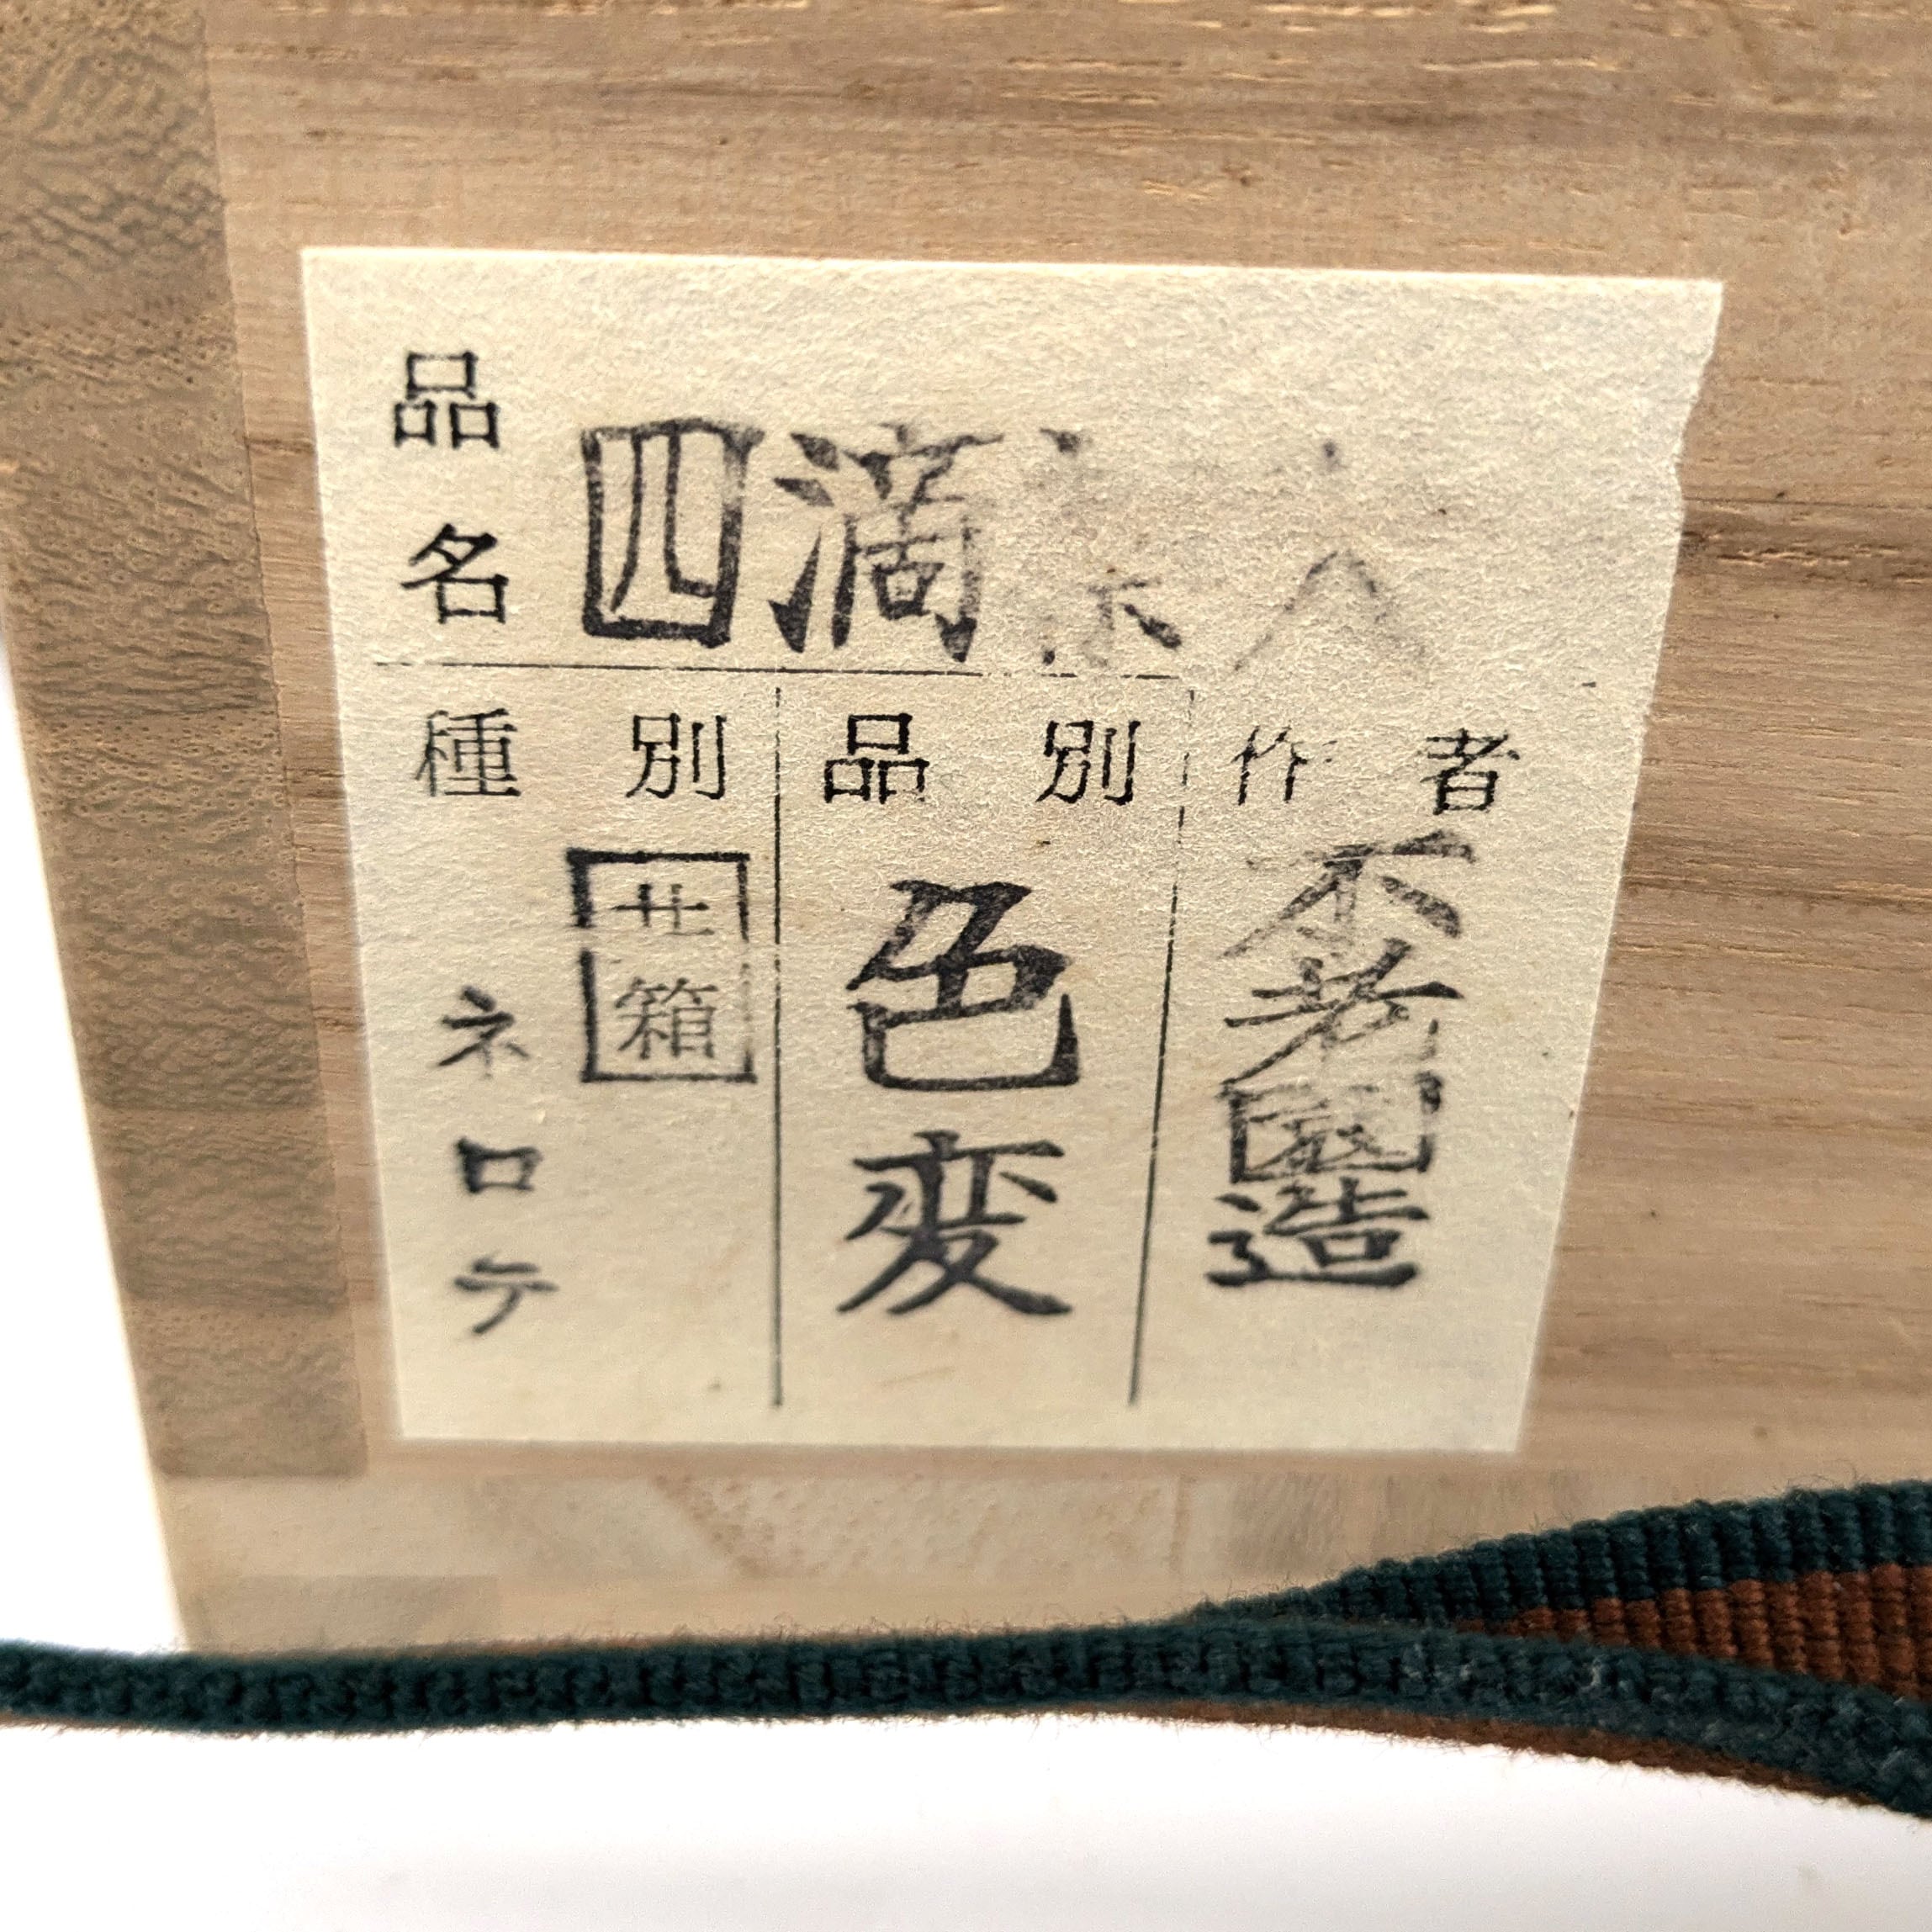 品名
四滴
種別 品別 作者
廿箱
ネロテ
色変
不老園造